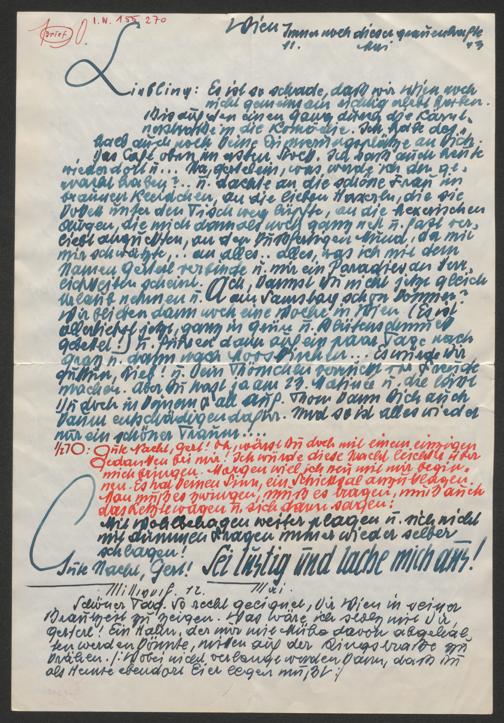 Brief I.N. 155 270
Wien Immer noch dieser grauenhafte
11. Mai 43
Liebling: Es ist so schade, daß wir Wien noch
nicht gemeinsam richtig erlebt haben.
Bis auf den einen Gang durch die Kärnt-
in die Komödie. Ich habe
auch noch Deine an Dich.
Das Café oben im ersten Stock. Ich saß auch heute
wieder dort u... gestern, was werde ich da ge-
macht haben?.. u. dachte an die schöne Frau im
braunen Kleidchen, an die lieben Hände, die die
unter den Tisch weg küßte, an die hexerischen
Augen, die mich damals noch ganz neu u. fast ver-
liebt anguckten, an den Mund, der mit
mir schwätzte... an alles.. alles, was ich mit dem
Namen Gerterl verbinde u. mir ein Paradies der
scheint. Ach, kannst Du nicht jetzt gleich
Urlaub nehmen u. am Samstag schon kommen?
Wir bleiben dann noch eine Woche in Wien (Es ist
allerliebst jetzt, ganz in grün u. Blütenschmuck
gebettet!) u. fahren dann auf ein paar Tage nach
Graz u. dann nach Moos... Es würde Dir
guttun, Liebl! u. Dein Thömchen verrückt vor Freude
machen. Aber Du hast ja am 23. Matinée u. die läßt
Du doch in keinem Fall aus. Thom kann Dich auch
kaum entschädigen dafür. Und so ist alles wieder
nur ein schöner Traum....
Gute Nacht, Gert! Oh, wärst Du doch mit einem einzigen
Gedanken bei mir! Ich würde diese Nacht leichter über
mich bringen. Morgen will ich neu mit mir begin-
nen. Es hat keinen Sinn, ein Schicksal anzuklagen.
Man muß es zwingen, muß es tragen, muß auch
das u. sich dann sagen:
Mit Wohlbehagen weiter plagen u. sich nicht
mit dummen Fragen immer wieder selber
schlagen!
Gute Nacht, Gert! Sei lustig und lache mich aus!
Mittwoch. 12. Mai.
Schöner Tag. So recht geeignet, Dir Wien in seiner
Brautzeit zu zeigen. Was wäre ich selig mit Dir,
Gerterl! Ein Hahn, der nur mit Mühe davon abgehal-
ten werden könnte, mitten auf der Ringstraße zu
krähen. /: Wobei nicht verlangt werden kann, daß Du
als Henne ebendort Eier legen mußt :/